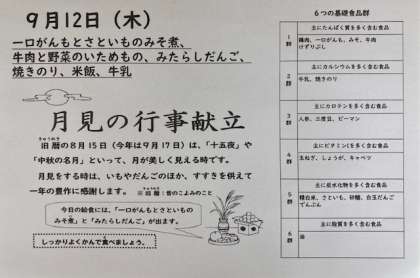 9月12日（木）
一口がんもとさといものみそ煮、
牛肉と野菜のいためもの、みたらしだんご、
焼きのり、米飯、牛乳
月見の行事献立
きゅうれき
旧暦の8月15日（今年は9月17日）は、「十五夜」や
「中秋の名月」といって、月が美しく見える時です。
月見をする時は、いもやだんごのほか、すすきを供えて
一年の豊作に感謝します。
※旧暦：昔のこよみのこと
今日の給食には、「一口がんもとさといもの
みそ煮」と「みたらしだんご」が出ます。
しっかりよくかんで食べましょう。
6つの基礎食品群
主にたんぱく質を多く含む食品
1群
鶏肉、一口がんも、みそ、牛肉
けずりぶし
主にカルシウムを多く含む食品
2群
牛乳、焼きのり
主にカロテンを多く含む食品
3群
人参、三度豆、ピーマン
主にビタミンCを多く含む食品
4群
玉ねぎ、しょうが、キャベツ
主に炭水化物を多く含む食品
5群
精白米、さといも、砂糖、白玉だんご
でんぷん
主に脂質を多く含む食品
6群
油